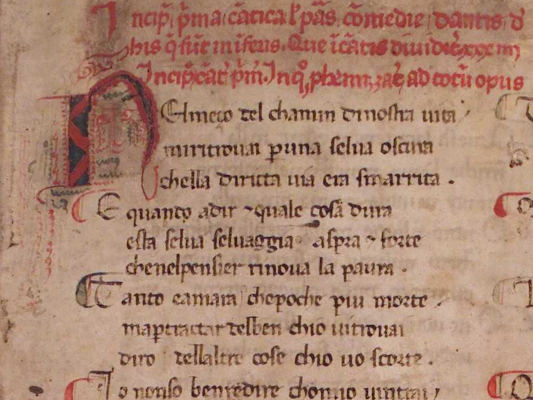 Incip̃. p̃ma. cãtica. l. p̃as. cõmedie. dantis. d̓
his q̃ sũt ĩ ĩferis. Que ĩ cãtis diuidit᷑. xxx iiii
Incipit cãt᷑ p̃m̃. In q̃. phemizat᷑ ad totũ opus
Nelmeço del chamin dinostra uita
miritrouai p una selua oscura
chella diricta uia era smarrita .
E quanto adir ⁊ quale cosã dura
esta selua seluaggia aspra ⁊ forte
chenelpensier rinoua la paura .
Tanto eamara chepoche piu morte .
mapertractar delben chio uitrouai
diro dellaltre cose chio uo scorte .
Io nonso benredire chomio uintrai